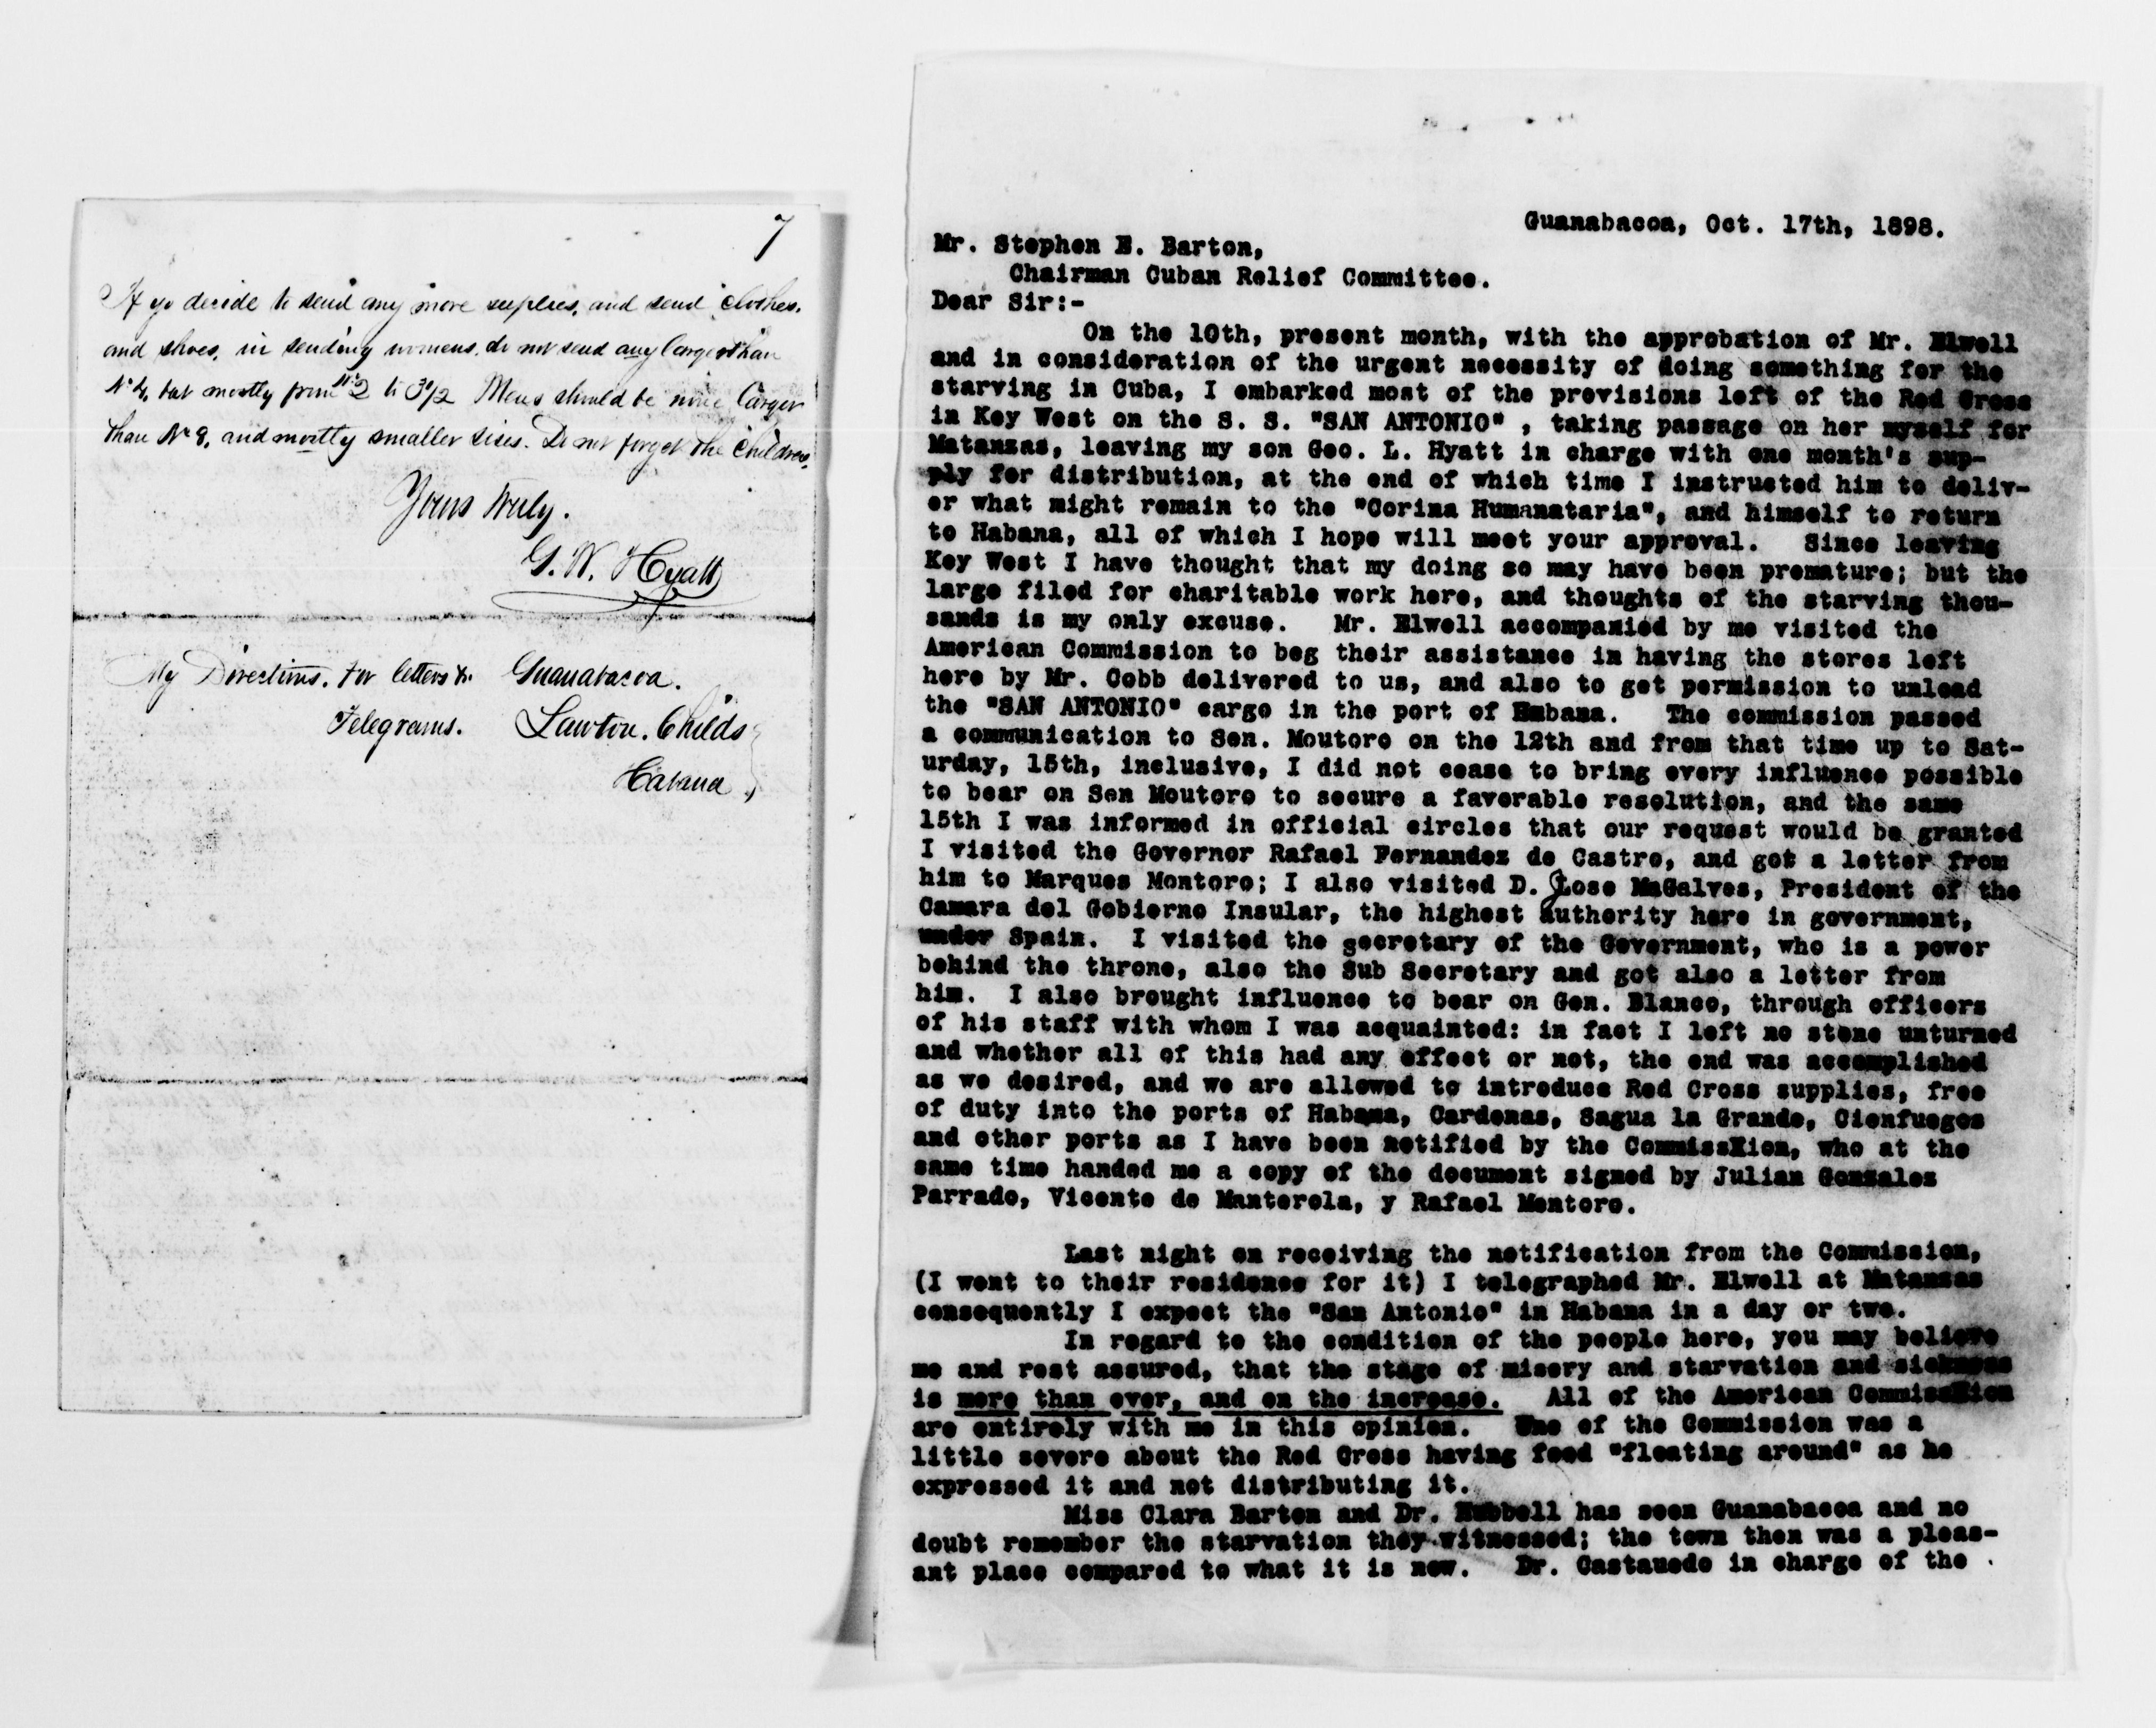 7
If yo decide to send any more supplies, and send clothes.
and shoes, in sending womens, do not send any larger than
No 4, but mostly from No 2 to 3 1/2 Mens should be none larger
than No 8, and mostly smaller sises. Do not forget the children,
Yours truly.
G. W. Hyatt
My Directions. For letters &c. Guanabacoa.
Telegrams. Lawton. Childs
Habana
Guanabacoa, Oct. 17th, 1898.
Mr. Stephen E. Barton,
Chairman Cuban Relief Committee.
Dear Sir:-
On the 10th, present month, with the approbation of Mr. Elwell
and in consideration of the urgent necessity of doing something for the
starving in Cuba, I embarked most of the provisions left of the Red Cross
in Key West on the S. S. "SAN ANTONIO" , taking passage on her myself for
Matanzas, leaving my son Geo. L. Hyatt in charge with one month's sup-
ply for distribution, at the end of which time I instructed him to deliv-
er what might remain to the "Corina Humanataria", and himself to return
to Habana, all of which I hope will meet your approval. Since leaving
Key West I have thought that my doing so may have been premature; but the
large filed for charitable work here, and thoughts of the starving thou-
sands is my only excuse. Mr. Elwell accompanied by me visited the
American Commission to beg their assistance in having the stores left
here by Mr. Cobb delivered to us, and also to get permission to unload
the "SAN ANTONIO" cargo in the port of Habana. The commission passed
a communication to Sen. Moutoro on the 12th and from that time up to Sat-
urday, 15th, inclusive, I did not cease to bring every influence possible
to bear on Sen Moutoro to secure a favorable resolution, and the same
15th I was informed in official circles that our request would be granted
I visited the Governor Rafael Fernandez de Castro, and got a letter from
him to Marques Montoro; I also visited D. Jose MaGalves, President of the
Camara del Gobierno Insular, the highest authority here in government,
under Spain. I visited the secretary of the Government, who is a power
behind the throne, also the Sub Secretary and got also a letter from
him. I also brought influence to bear on Gen. Blanco, through officers
of his staff with whom I was acquainted: in fact I left no stone unturned
and whether all of this had any effect or not, the end was accomplished
as we desired, and we are allowed to introduce Red Cross supplies, free
of duty into the ports of Habana, Cardenas, Sagua la Grande, Cienfuegos
and other ports as I have been notified by the CommissXion, who at the
same time handed me a copy of the document signed by Julian Gonzales
Parrado, Vicente de Manterola, y Rafael Montoro.
Last night on receiving the notification from the Commission,
(I went to their residence for it) I telegraphed Mr. Elwell at Matanzas
consequently I expect the "San Antonio" in Habana in a day or two.
In regard to the condition of the people here, you may believe
me and rest assured, that the stage of misery and starvation and sickness
is more than ever, and on the increase. All of the American CommissXion
are entirely with me in this opinion. One of the Commission was a
little severe about the Red Cross having food "floating around" as he
expressed it and not distributing it.
Miss Clara Barton and Dr. Hubbell has seen Guanabacoa and no
doubt remember the starvation they witnessed; the town then was a pleas-
ant place compared to what it is now. Dr. Castauedo in charge of the